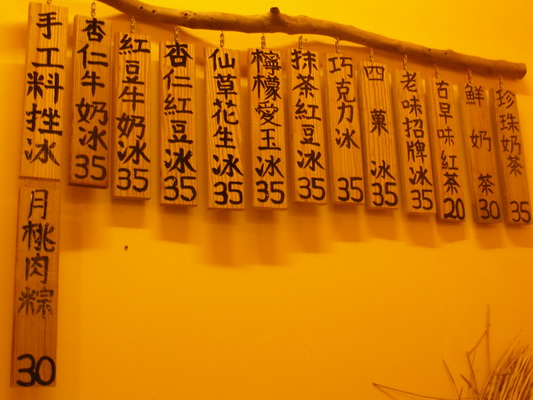 手工料挫冰
月桃肉粽 30
杏仁牛奶冰 35
紅豆牛奶冰 35
杏仁紅豆冰 35
仙草花生冰 35
檸檬愛玉冰 35
抹茶紅豆冰 35
巧克力冰 35
四菓冰 35
老味招牌冰 35
古早味紅茶 20
鮮奶茶 30
珍珠奶茶 35